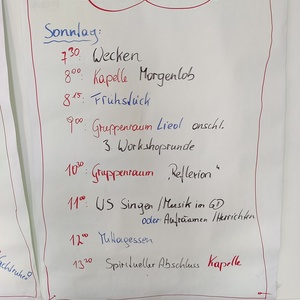 Sonntag:
7³⁰: Wecken
8⁰⁰: Kapelle Morgenlob
8¹⁵: Frühstück
9⁰⁰: Gruppenraum Lied anschl.
3 Workshoprunde
10³⁰: Gruppenraum "Reflexion"
11⁰⁰: WS Singen / Musik im GD
oder Aufräumen / Herrichten
12⁰⁰ Mittagessen
13³⁰ Spiritueller Abschluss Kapelle